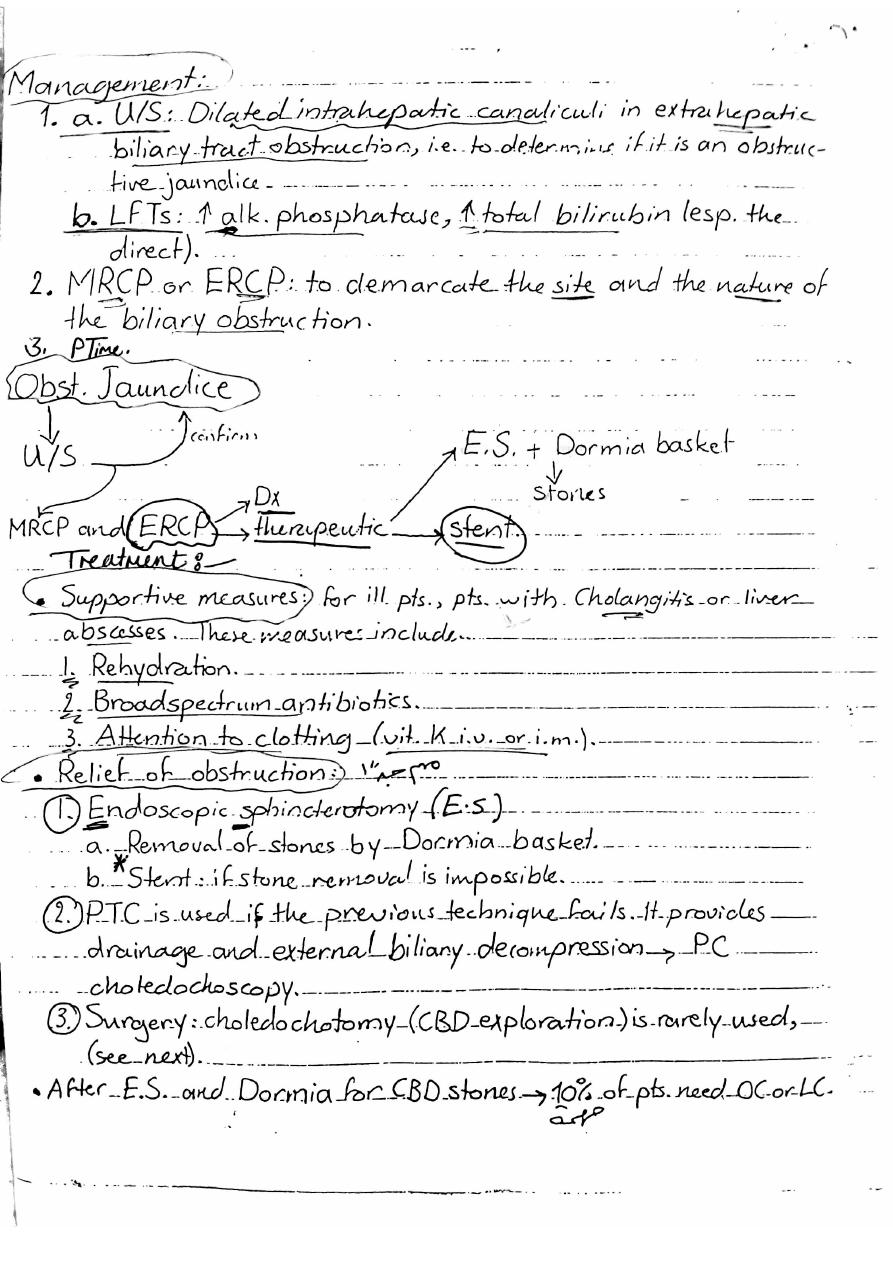 Management:
1. a. U/S: Dilated intrahepatic canaliculi in extrahepatic
biliary tract obstruction, i.e. to determine if it is an obstruc-
tive jaundice.
b. LFTs: ↑ alk. phosphatase, ↑ total bilirubin (esp. the
direct).
2. MRCP or ERCP: to demarcate the site and the nature of
the biliary obstruction.
3. PTime.
Obst. Jaundice
confirm
U/S
E.S. + Dormia basket
stones
Dx
MRCP and ERCP → therapeutic → stent.
Treatment:
• Supportive measures: for ill pts., pts. with Cholangitis or liver
abscesses. These measures include
1. Rehydration.
2. Broadspectrum antibiotics.
3. Attention to clotting (vit. K i.v. or i.m.).
• Relief of obstruction:
1. Endoscopic sphincterotomy (E.S)
a. Removal of stones by Dormia basket.
b. * Stent: if stone removal is impossible.
2. PTC is used if the previous technique fails. It provides
drainage and external biliary decompression → PC
choledochoscopy.
3. Surgery: choledochotomy (CBD exploration) is rarely used,
(see next).
• After E.S. and Dormia for CBD stones → 10% of pts. need OC or LC.